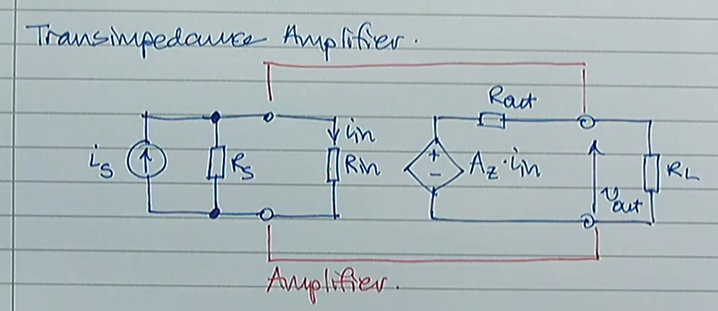 Transimpedance Amplifier.
Rout
is
Rs
iin
Rin
+
-
Az·iin
vout
RL
Amplifier.